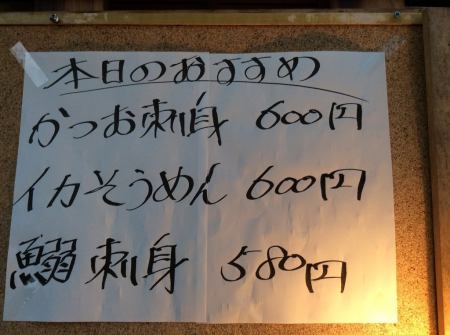 本日のおすすめ
かつお刺身 600円
イカそうめん 600円
鰯刺身 580円